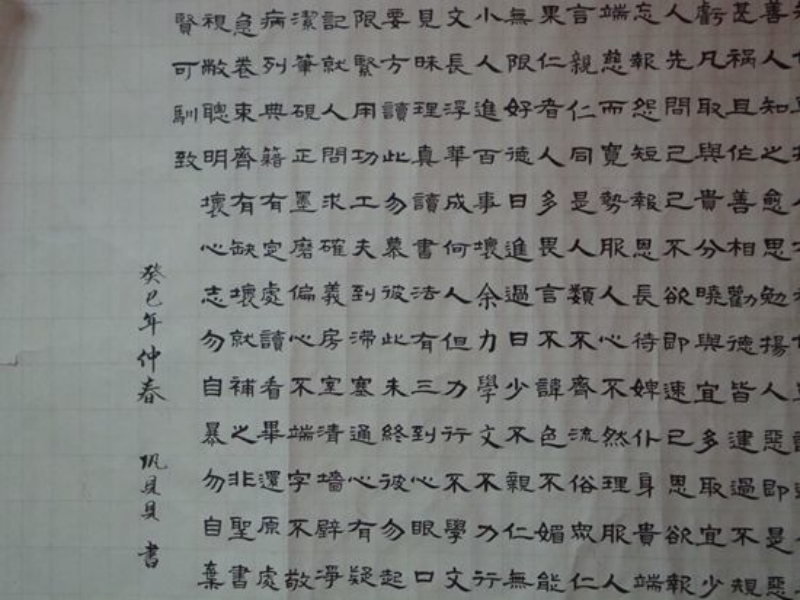 善人知之愈思勉揚人惡即是惡
甚禍且作善相勸德皆建過不規
虧凡取與貴分曉與宜多取宜少
人先問己己不欲即速已恩欲報
忘報怨短報恩長待婢仆身貴端
端慈而寬勢服人心不然理服人
言親仁同是人類不齊流俗眾仁
果仁者人多畏言不諱色不媚能
無限好德日進過日少不親仁無
小人進百事壞余力學文不力行
文長浮華成何人但力行不學文
見昧理真讀書法有三到心眼口
要方讀此勿慕彼此未終彼勿起
限緊用功工夫到滯塞通心有疑
記就人問求確義房室清墻壁淨
潔筆硯正墨磨偏心不端字不敬
病列典籍有定處讀看畢還原處
急卷束齊有缺壞就補之非聖書
視敝聰明壞心志勿自暴勿自棄
賢可馴致
癸巳年仲春 巩貝貝 書